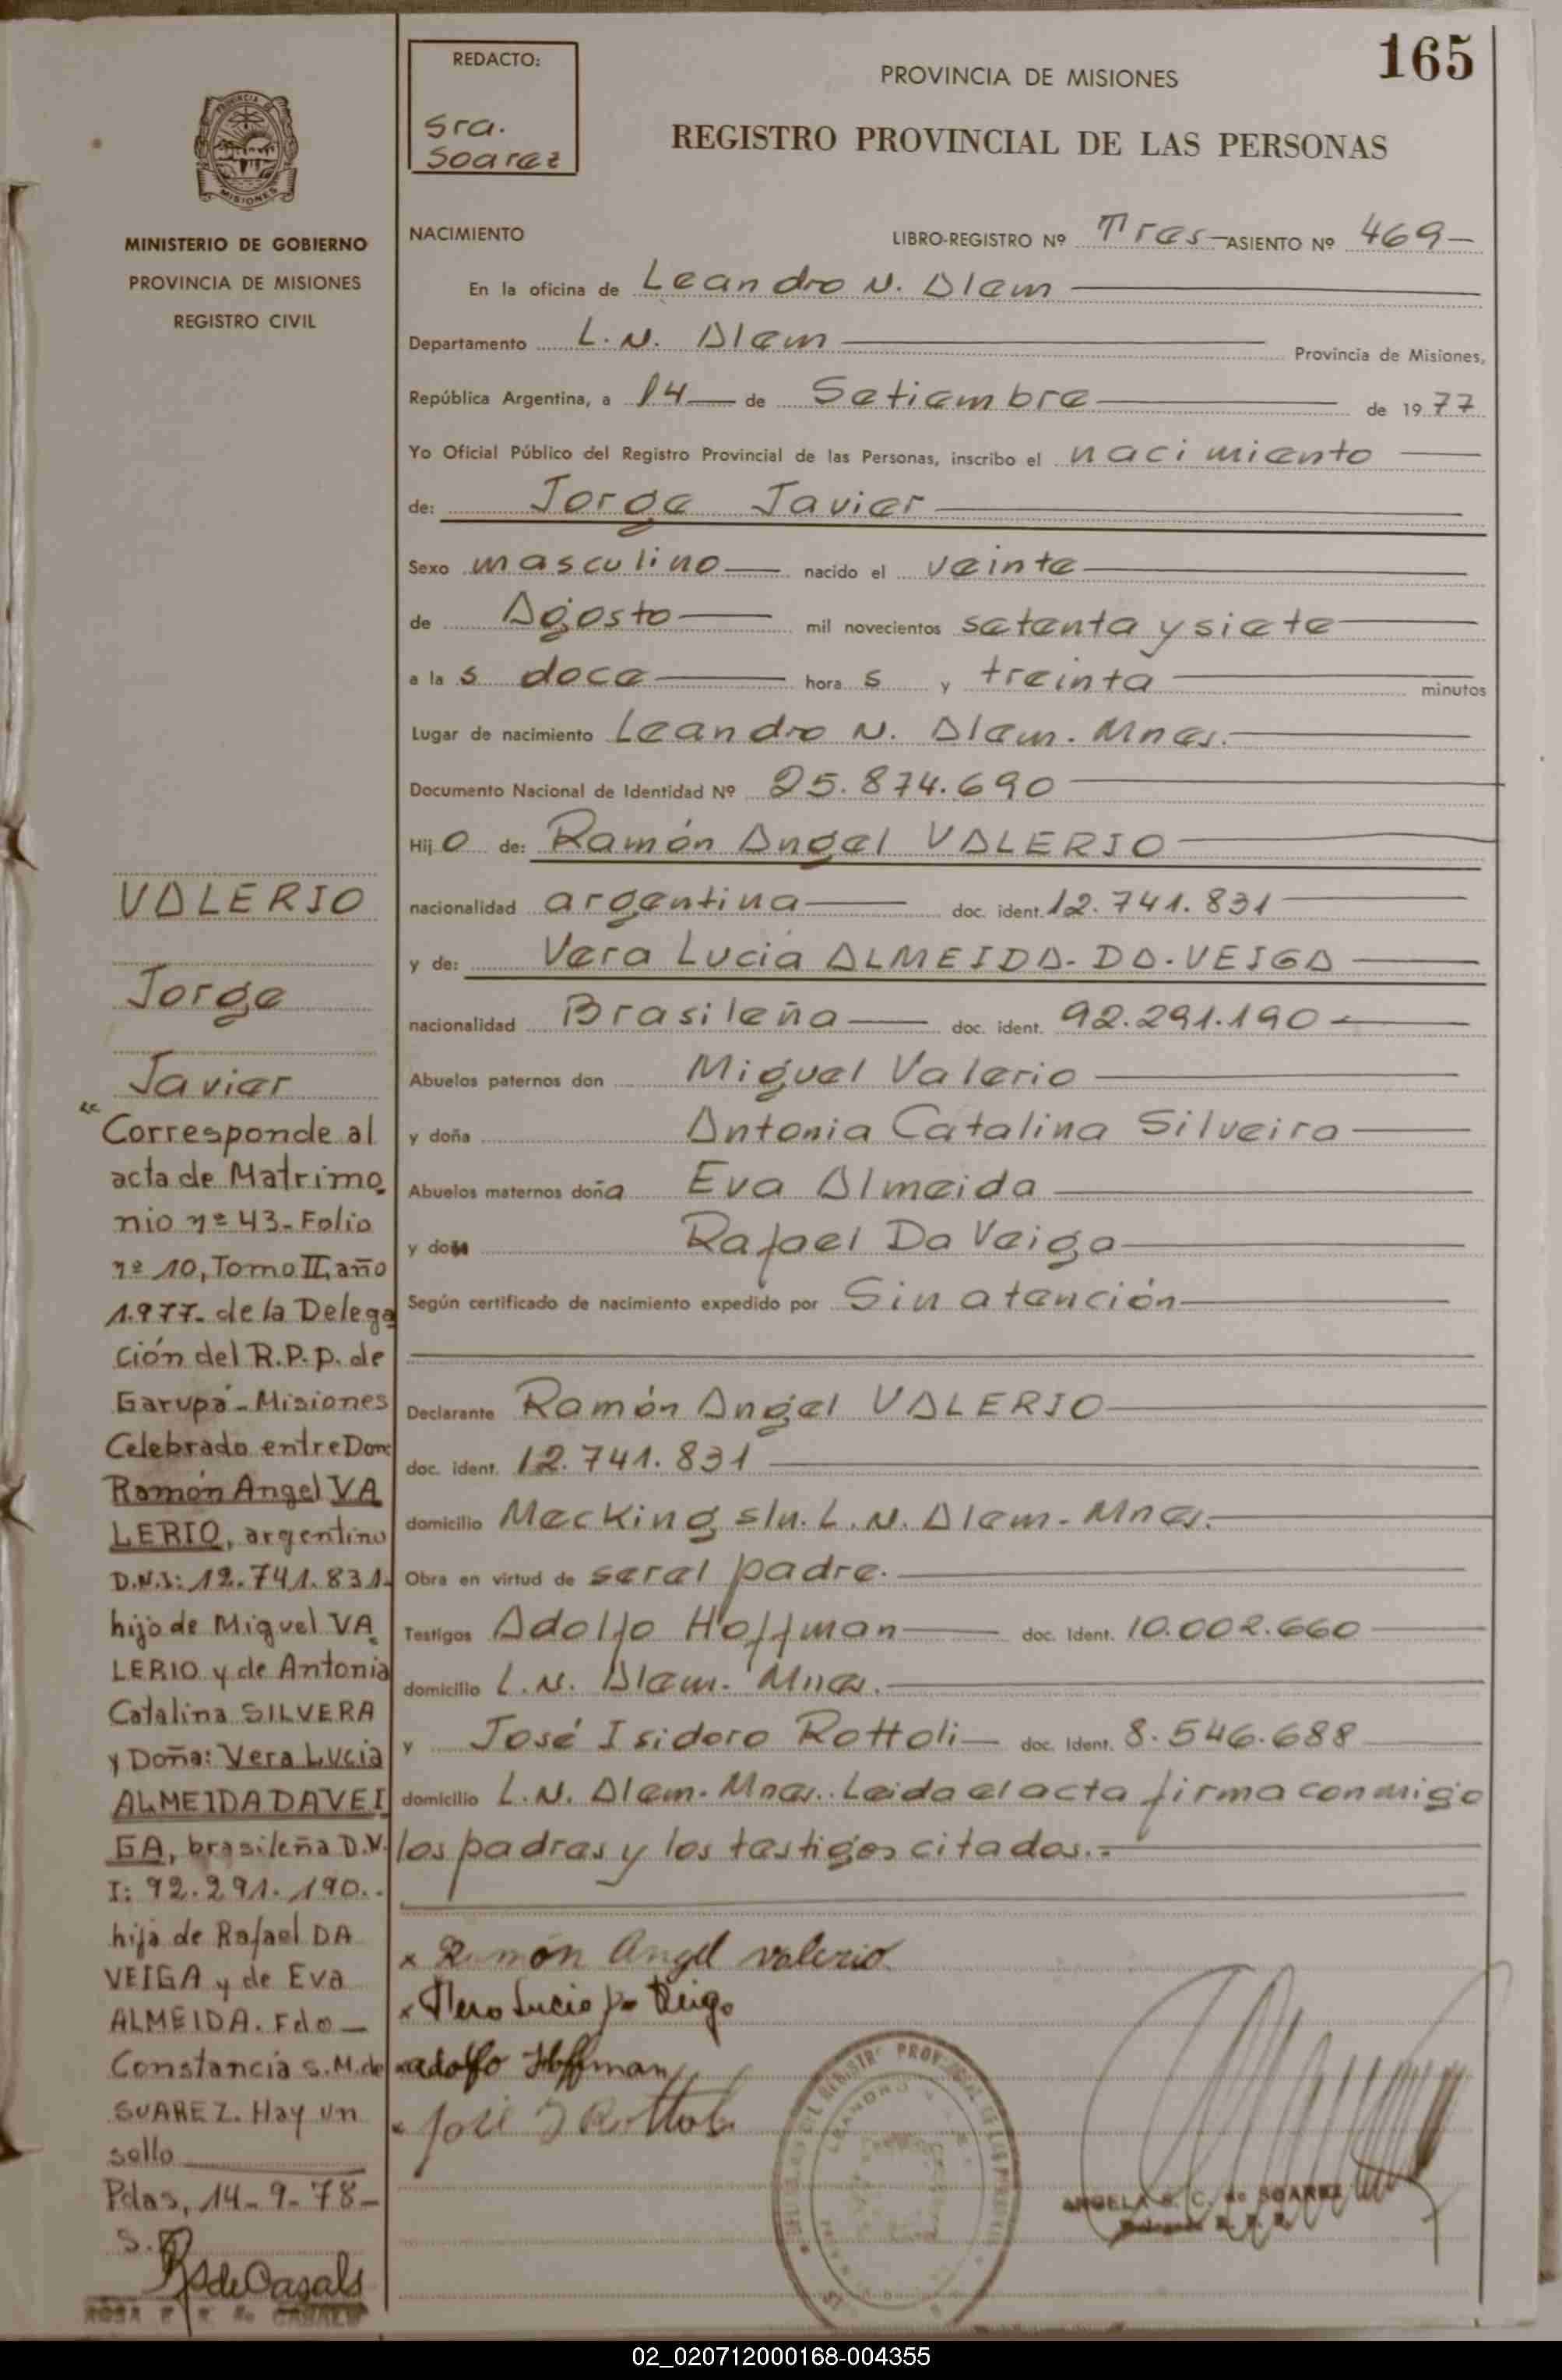 165
REDACTO:
Sra.
Soarez
PROVINCIA DE MISIONES
REGISTRO PROVINCIAL DE LAS PERSONAS
MISIONES
MINISTERIO DE GOBIERNO
PROVINCIA DE MISIONES
REGISTRO CIVIL
NACIMIENTO LIBRO-REGISTRO Nº Tres ASIENTO Nº 469
En la oficina de Leandro N. Alem
Departamento L. N. Alem Provincia de Misiones,
República Argentina, a 14 de Setiembre de 1977
Yo Oficial Público del Registro Provincial de las Personas, inscribo el nacimiento
de: Jorge Javier
Sexo masculino nacido el veinte
de Agosto mil novecientos setenta y siete
a la s doce hora s y treinta minutos
Lugar de nacimiento Leandro N. Alem. Mnes.
Documento Nacional de Identidad Nº 25.874.690
Hij o de: Ramón Angel VALERIO
nacionalidad argentina doc. ident. 12.741.831
y de: Vera Lucia ALMEIDA-DA-VEIGA
nacionalidad Brasileña doc. ident. 92.291.190
Abuelos paternos don Miguel Valerio
y doña Antonia Catalina Silveira
Abuelos maternos doña Eva Almeida
y don Rafael Da Veiga
Según certificado de nacimiento expedido por Sin atención
Declarante Ramón Angel VALERIO
doc. ident. 12.741.831
domicilio Mecking s/n. L. N. Alem - Mnes.
Obra en virtud de ser el padre.
Testigos Adolfo Hoffman doc. Ident. 10.002.660
domicilio L. N. Alem. Mnes.
y José Isidoro Rottoli doc. Ident. 8.546.688
domicilio L. N. Alem. Mnes. Leida el acta firma conmigo
los padres y los testigos citados.-
x Ramón Angel Valerio
x Vera Lucia Da Veiga
x Adolfo Hoffman
x José I Rottoli
ANGELA S. C. de SOAREZ
Delegada R. P. P.
VALERIO
Jorge
Javier
"Corresponde al
acta de Matrimo
nio nº 43- Folio
nº 10, Tomo II, año
1.977- de la Delega
ción del R.P.P. de
Garupá - Misiones
Celebrado entre Don:
Ramón Angel VA
LERIO, argentino
D.N.I: 12.741.831-
hijo de Miguel VA
LERIO y de Antonia
Catalina SILVERA
y Doña: Vera Lucia
ALMEIDA DA VEI
GA, brasileña D.N.
I: 92.291.190.-
hija de Rafael DA
VEIGA y de Eva
ALMEIDA. Fdo
Constancia S.M. de
SUAREZ. Hay un
sello
Pdas, 14-9-78-
R de Casals
02_020712000168-004355